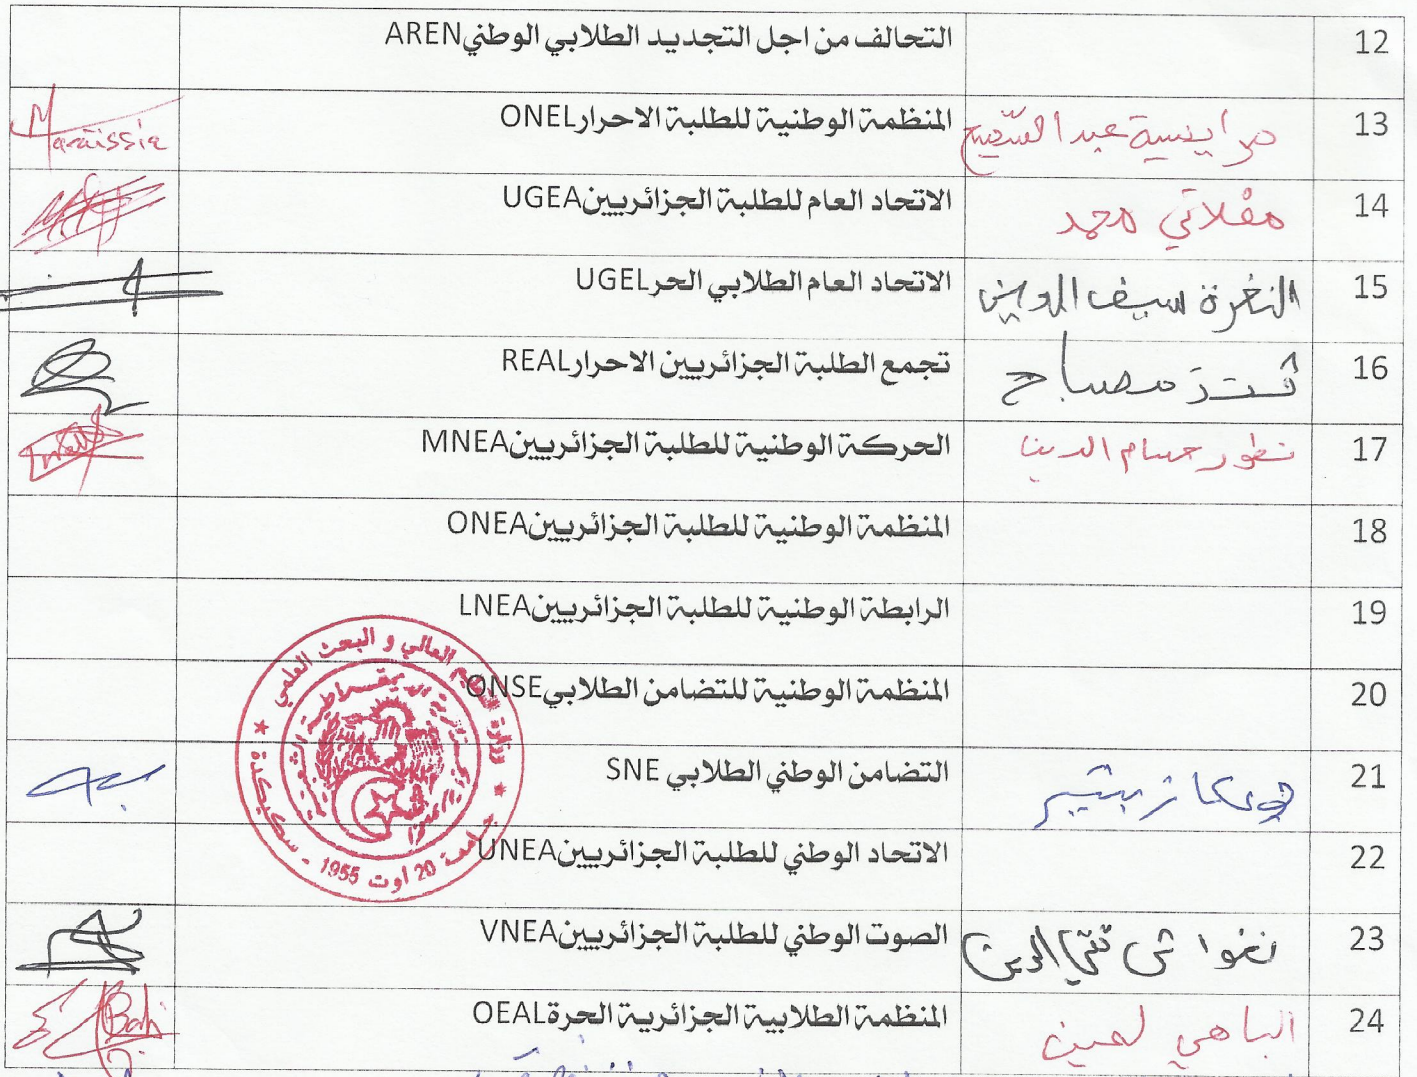 12 التحالف من اجل التجديد الطلابي الوطنيAREN
13 مرايسية عبد السميح المنظمة الوطنية للطلبة الاحرارONEL Maraissia
14 مقلاتي محمد الاتحاد العام للطلبة الجزائريينUGEA
15 النغرة سيف الدين الاتحاد العام الطلابي الحرUGEL
16 مصباح تجمع الطلبة الجزائريين الاحرارREAL
17 حسام الدين الحركة الوطنية للطلبة الجزائريينMNEA
18 المنظمة الوطنية للطلبة الجزائريينONEA
19 الرابطة الوطنية للطلبة الجزائريينLNEA
20 المنظمة الوطنية للتضامن الطلابيONSE
21 بشير التضامن الوطني الطلابي SNE
22 الاتحاد الوطني للطلبة الجزائريينUNEA
23 تقي الدين الصوت الوطني للطلبة الجزائريينVNEA
24 الباهي لمين المنظمة الطلابية الجزائرية الحرةOEAL Bahi
وزارة التعليم العالي و البحث العلمي
الجمهورية الجزائرية الديمقراطية الشعبية
جامعة 20 أوت 1955 - سكيكدة